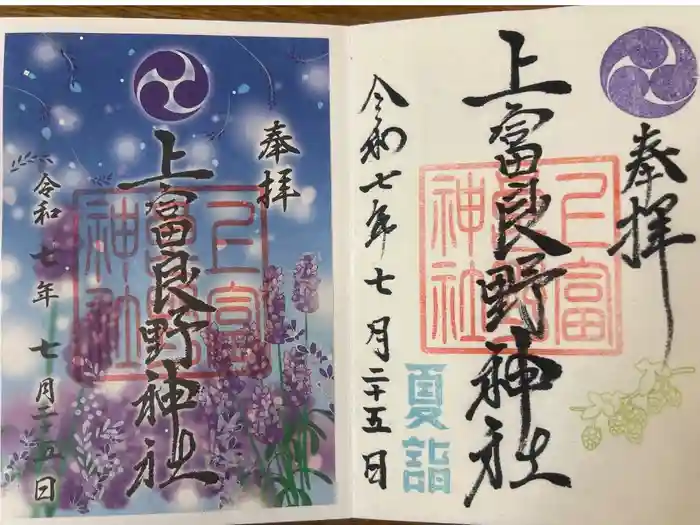 奉拝
上富良野神社
上富良野神社
令和七年七月二十五日
奉拝
上富良野神社
上富良野神社
令和七年七月二十五日
夏詣